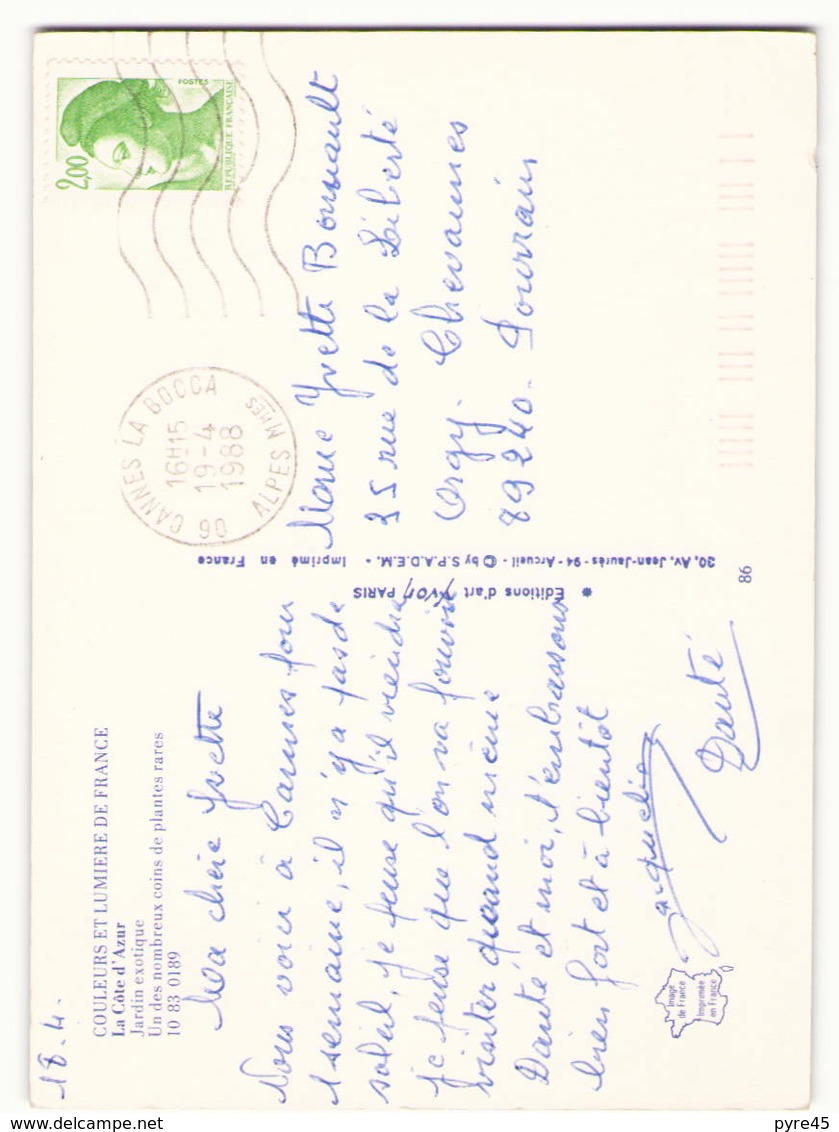 18.4.
COULEURS ET LUMIERE DE FRANCE
La Côte d'Azur
Jardin exotique
Un des nombreux coins de plantes rares
10 83 0189
Ma chère Yvette
Nous voici à Cannes pour
1 semaine, il n'y a pas de
soleil, je pense qu'il viendra
je pense que l'on va pouvoir
visiter quand même
Danté et moi, t'embrassons
bien fort et à bientôt
Jacqueline
Danté
Image
de France
Imprimée
en France
✱ Editions d'art YVON PARIS
20, Av. Jean-Jaurès - 94 - Arcueil - © by S.P.A.D.E.M. - Imprimé en France
86
POSTES
2,00
REPUBLIQUE FRANÇAISE
06 CANNES LA BOCCA
16H15
19-4
1988
ALPES MMES
Mme Yvette Bonnault
35 rue de la Liberté
Orgy. Chevannes
89240. Pourrain
pyre45